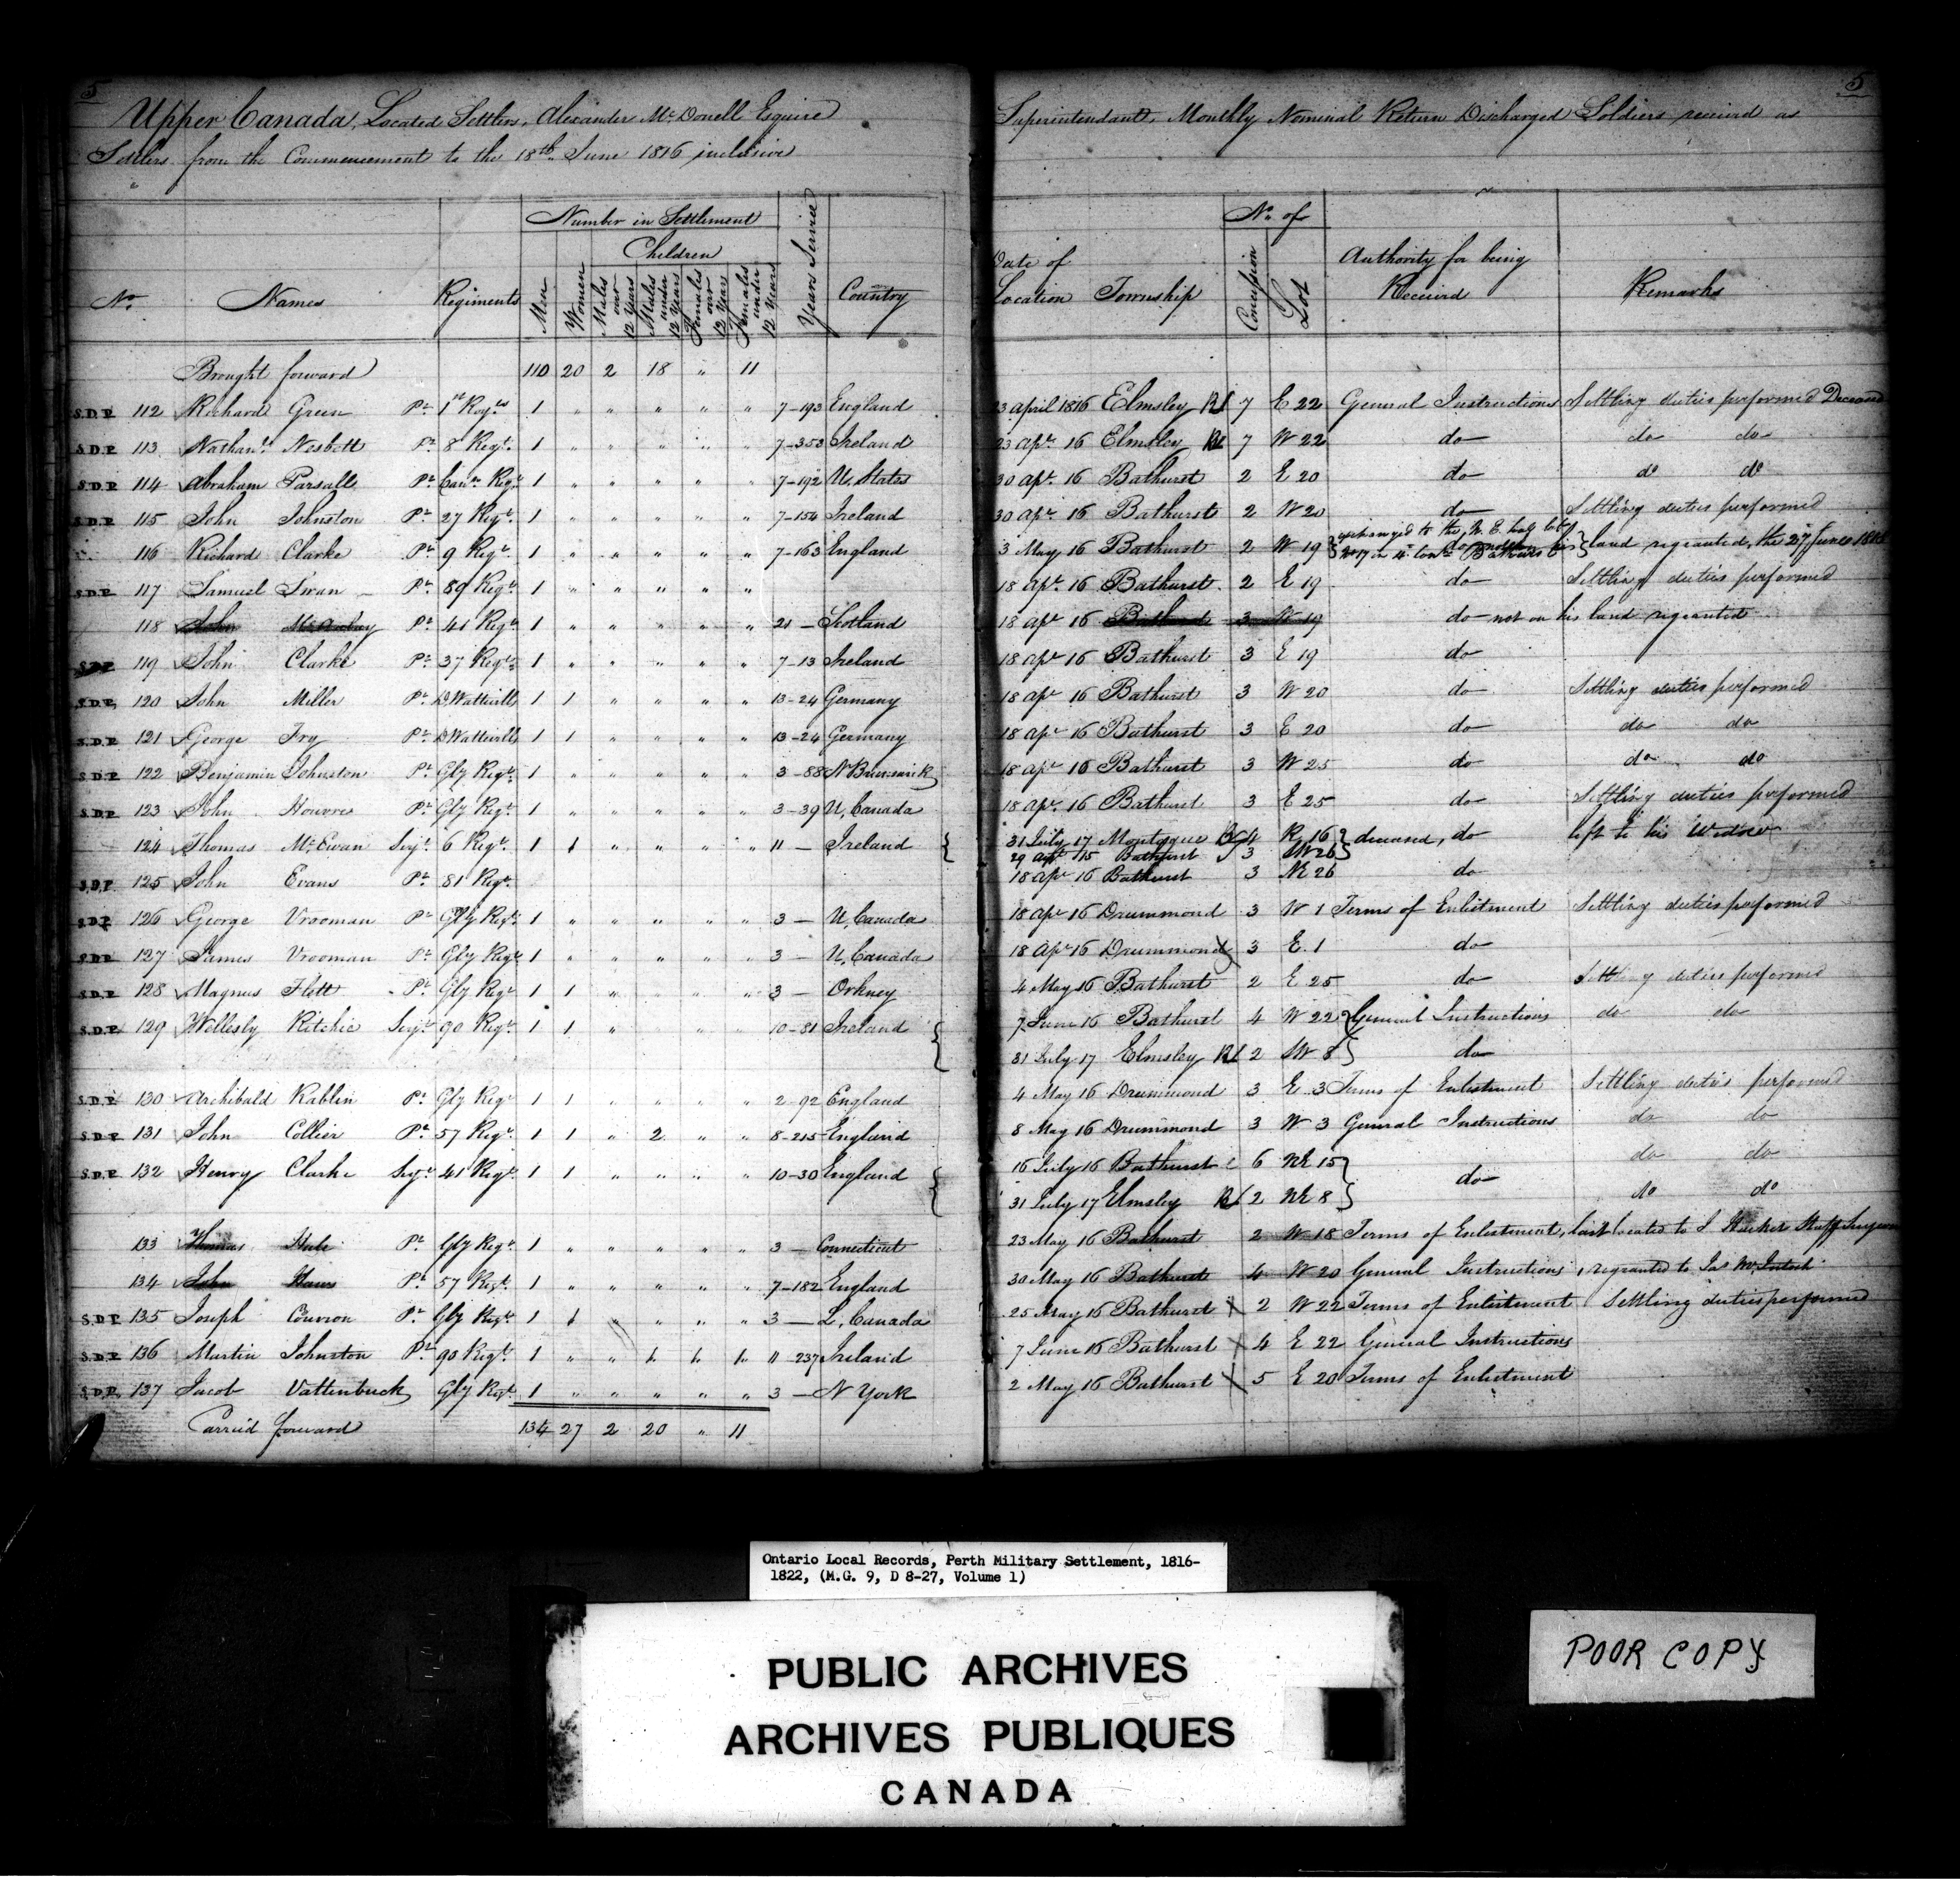 5
Upper Canada, Located Settlers, Alexander McDonell Esquire
Settlers from the Commencement to the 18th June 1816 inclusive
No. Names Regiments Number in Settlement Years Service Country
Children
Men Women Males over 12 Years Males under 12 Years Females over 12 Years Females under 12 Years
Brought forward 110 20 2 18 " 11
S.D.P. 112 Richard Green Pt 1st Roy.ls 1 " " " " " 7-193 England
S.D.P. 113 Nathanl. Nesbett Pt 8 Regt. 1 " " " " " 7-353 Ireland
S.D.P. 114 Abraham Parsall Pt Can.n Regt 1 " " " " " 7-192 U. States
S.D.P. 115 John Johnston Pt 27 Regt. 1 " " " " " 7-154 Ireland
116 Richard Clarke Pt 9 Regt. 1 " " " " " 7-163 England
S.D.P. 117 Samuel Swan Pt 89 Regt. 1 " " " " "
118 John Pt 41 Regt. 1 " " " " " 21 - Scotland
S.D.P. 119 John Clarke Pt 37 Regt. 1 " " " " " 7-13 Ireland
S.D.P. 120 John Miller Pt D Wattvills 1 1 " " " " 13-24 Germany
S.D.P. 121 George Fry Pt D Wattvills 1 1 " " " " 13-24 Germany
S.D.P. 122 Benjamin Johnston Pt Gly Regt. 1 " " " " " 3-88 N Brunswick
S.D.P. 123 John Pt Gly Regt. 1 " " " " " 3-39 U, Canada
124 Thomas McEwan Serjt. 6 Regt. 1 1 " " " " 11 - Ireland
S.D.P. 125 John Evans Pt 81 Regt.
S.D.P. 126 George Vrooman Pt Gly Regt. 1 " " " " " 3 - U, Canada
S.D.P. 127 James Vrooman Pt Gly Regt 1 " " " " " 3 - U, Canada
S.D.P. 128 Magnus Flett Pt Gly Regt 1 1 " " " " 3 - Orkney
S.D.P. 129 Wellesly Ritchie Serjt 90 Regt. 1 1 " " " " 10-81 Ireland
S.D.P. 130 Archibald Rablin Pt Gly Regt 1 1 " " " " 2-92 England
S.D.P. 131 John Collier Pt 57 Regt. 1 1 " 2 " " 8-215 England
S.D.P. 132 Henry Clarke Serjt 41 Regt. 1 1 " " " " 10-30 England
133 Thomas Pt Gly Regt. 1 " " " " " 3 - Connecticut
134 John Pt 57 Regt. 1 " " " " " 7-182 England
S.D.P. 135 Joseph Couvron Pt Gly Regt. 1 1 " " " 3 - L, Canada
S.D.P. 136 Martin Johnston Pt 90 Regt. 1 " " 11-237 Ireland
S.D.P. 137 Jacob Vattenbuck Gly Regt. 1 " " " " " 3 - N York
Carried forward 134 27 2 20 " 11
5
Superintendant, Monthly Nominal Return Discharged Soldiers received as
Date of Location Township No. of Authority for being Received Remarks
Concession Lot
23 April 1816 Elmsley Rl 7 E 22 General Instructions Settling duties performed Deceased
23 Apr. 16 Elmsley Rl 7 W 22 do do do
30 Apr. 16 Bathurst 2 E 20 do do do
30 Apr. 16 Bathurst 2 W 20 do Settling duties performed
3 May 16 Bathurst 2 W 19 exchanged to the N. E. half lot
No 17 in 4th Conn. Bathurst land regranted, the 27 June
18 Apr. 16 Bathurst 2 E 19 do Settling duties performed
18 Apr 16 Bathurst 3 W 19 do not on his land regranted
18 Apr 16 Bathurst 3 E 19 do
18 Apr 16 Bathurst 3 W 20 do Settling duties performed
18 Apr 16 Bathurst 3 E 20 do do do
18 Apr 16 Bathurst 3 W 25 do do do
18 Apr. 16 Bathurst 3 E 25 do Settling duties performed
31 July 17 Montague 4 R, 16 deceased, do left to his Widow
29 15 Bathurst 3 SW 26
18 Apr 16 Bathurst 3 NE 26 do
18 Apr 16 Drummond 3 W 1 Terms of Enlistment Settling duties performed
18 Apr 16 Drummond 3 E. 1 do
4 May 16 Bathurst 2 E 25 do Settling duties performed
7 June 16 Bathurst 4 W 22 General Instructions do do
31 July 17 Elmsley Rl 2 SW 8 do
4 May 16 Drummond 3 E. 3 Terms of Enlistment Settling duties performed
8 May 16 Drummond 3 W 3 General Instructions do do
16 July 16 Bathurst 6 NE 15 do do do
31 July 17 Elmsley Rl 2 NE 8 do do
23 May 16 Bathurst 2 W 18 Terms of Enlistment, located to Staff Surgeon
30 May 16 Bathurst 4 W 20 General Instructions, regranted to Jas McIntosh
25 May 16 Bathurst 2 W 22 Terms of Enlistment Settling duties performed
7 June 16 Bathurst 4 E 22 General Instructions
2 May 16 Bathurst 5 E 20 Terms of Enlistment
Ontario Local Records, Perth Military Settlement, 1816-
1822, (M.G. 9, D 8-27, Volume 1)
PUBLIC ARCHIVES
ARCHIVES PUBLIQUES
CANADA
POOR COPY